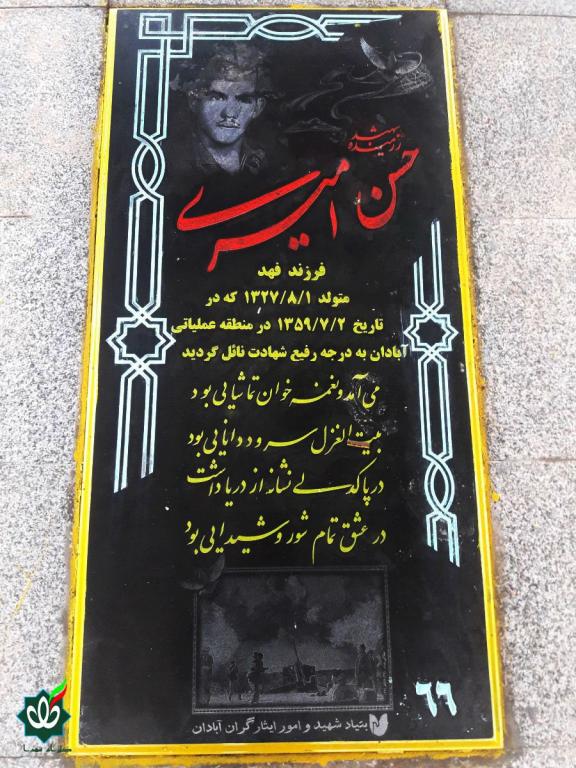 شهید
رزمنده
حسن امیری
فرزند فهد
متولد ۱۳۲۷/۸/۱ که در
تاریخ ۱۳۵۹/۷/۲ در منطقه عملیاتی
آبادان به درجه رفیع شهادت نائل گردید
می‌آمد و نغمه خوان تماشایی بود
بیت الغزل سرود دانایی بود
در پاکدلی نشانه از دریا داشت
در عشق تمام شور و شیدایی بود
بنیاد شهید و امور ایثارگران آبادان
۶۶